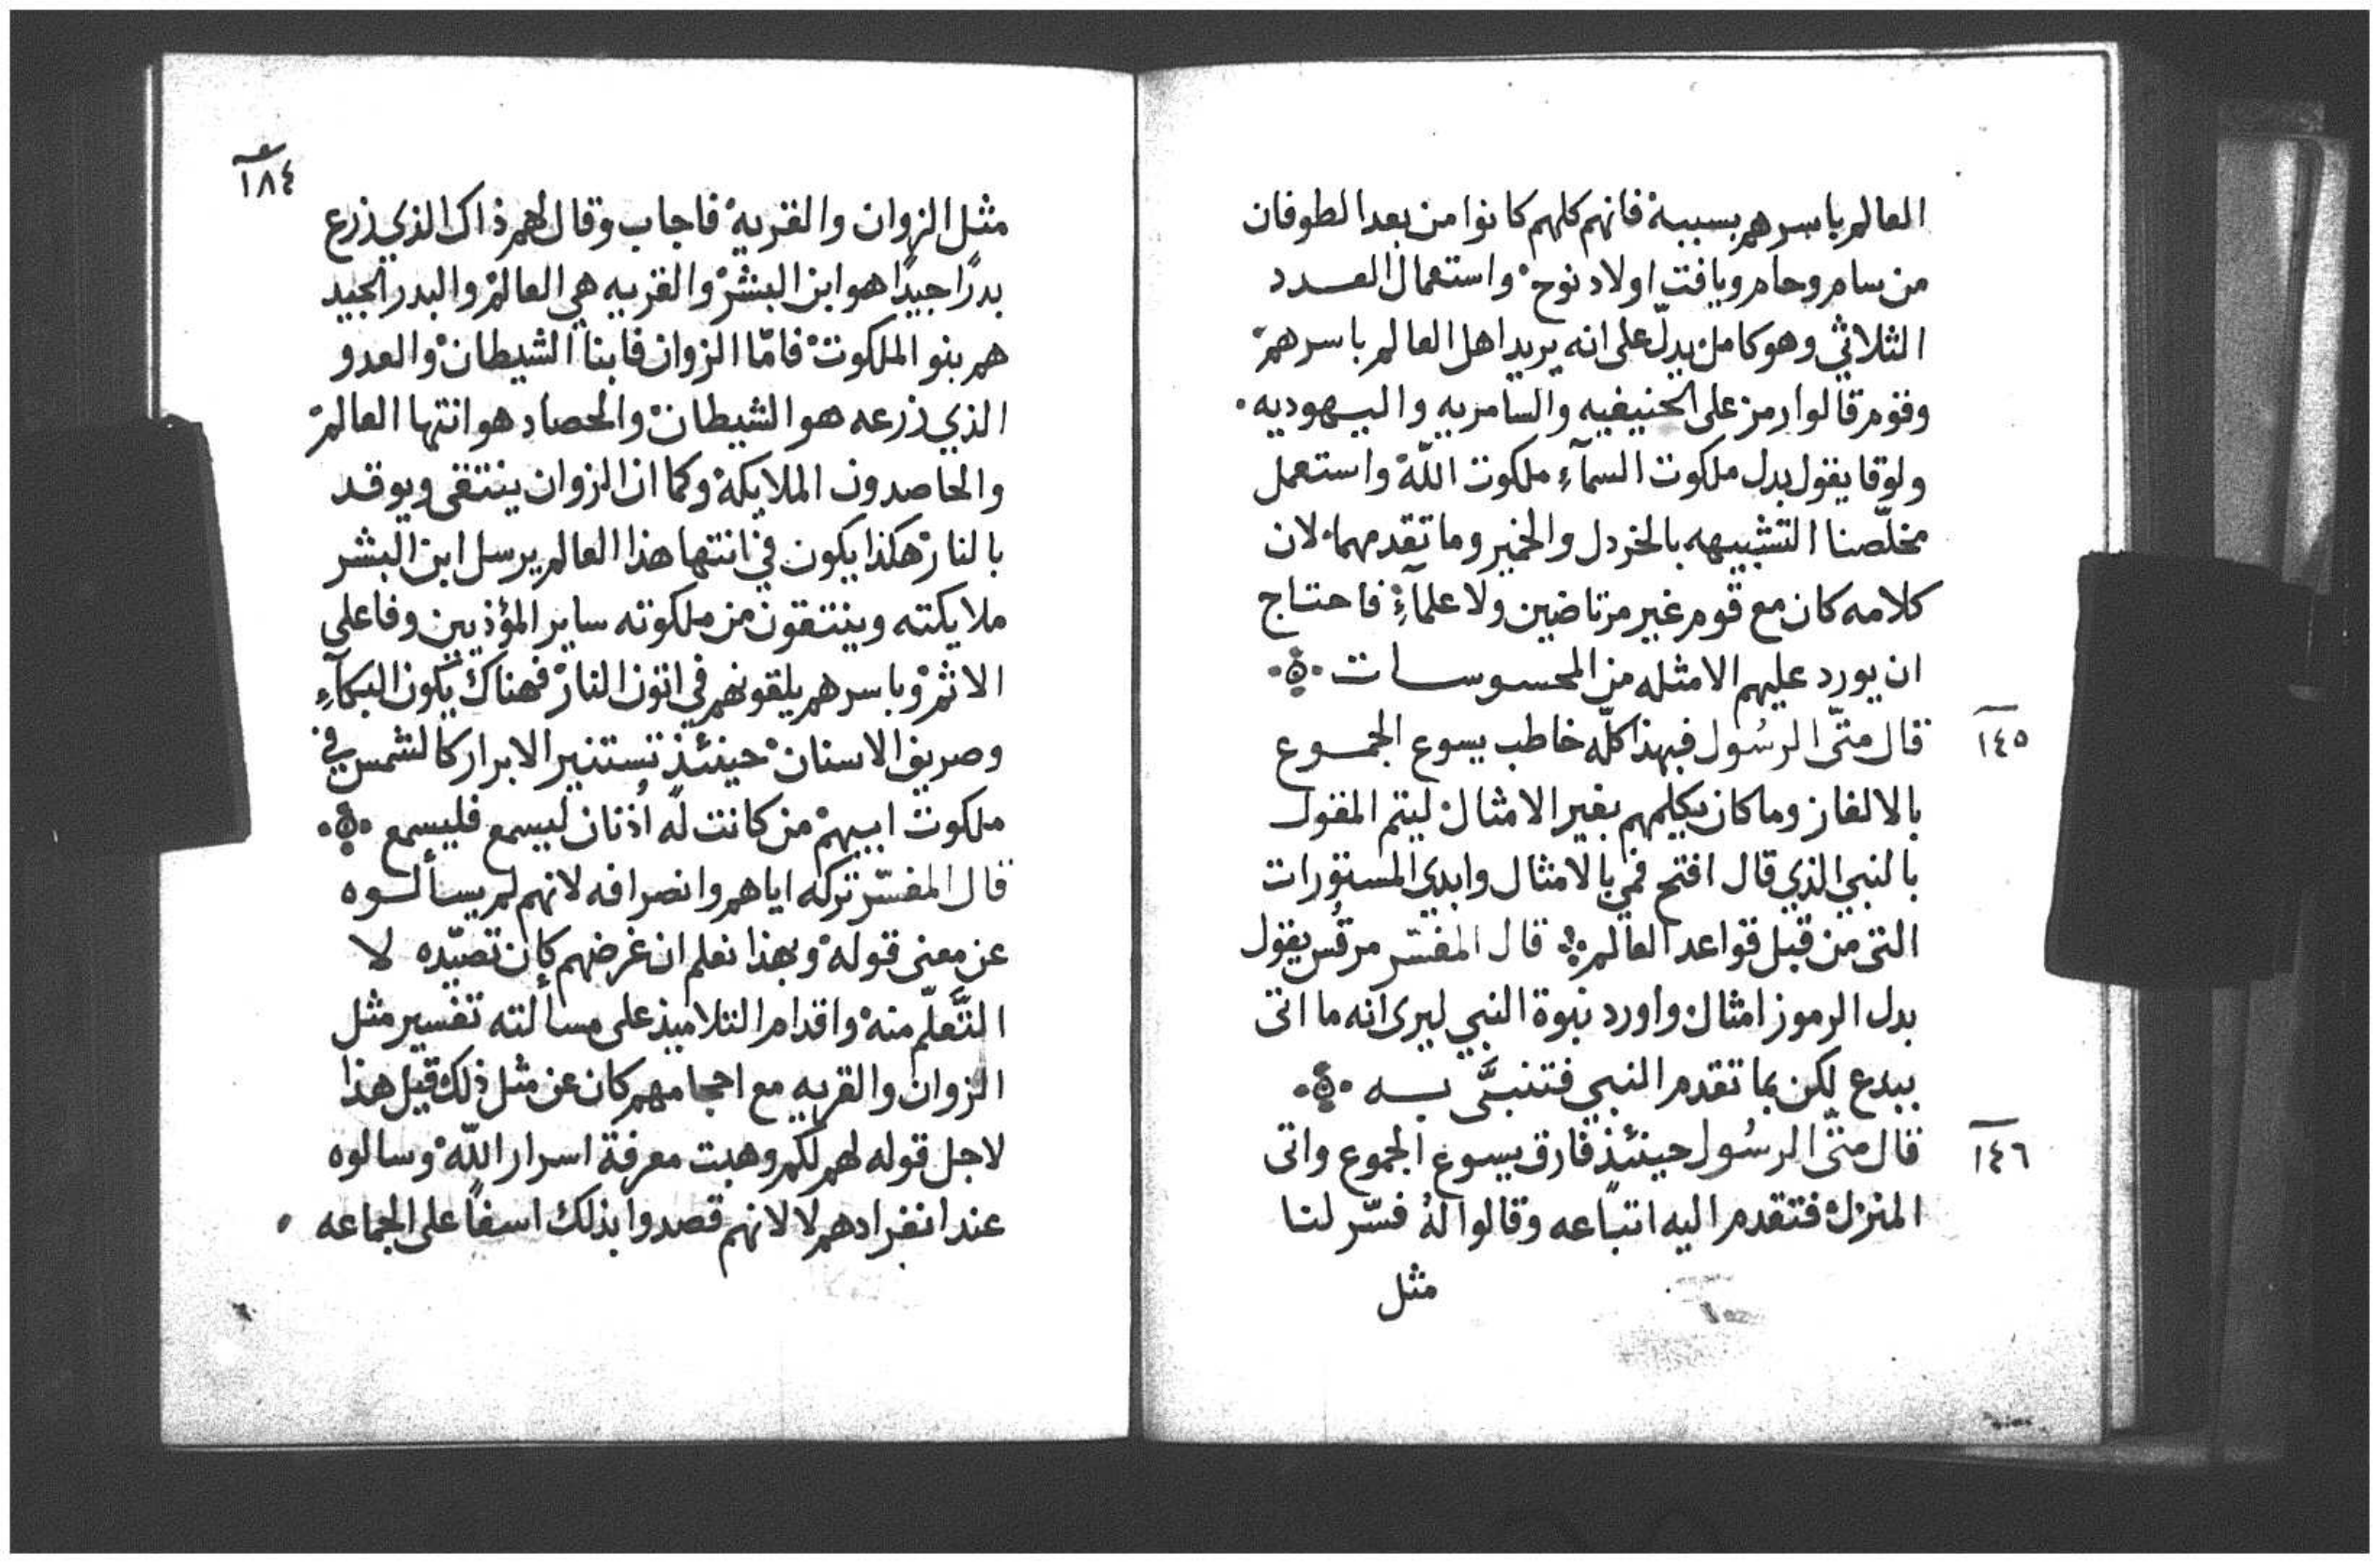 العالم باسرهم بسببه فانهم كلهم كانوا من بعد الطوفان
من سام وحام ويافت اولاد نوح واستعمال العدد
الثلاثي وهو كامل يدلّ على انه يريد اهل العالم باسرهم
وقوم قالوا رمز على الحنيفيه والسامريه واليهوديه
ولوقا يقول بدل ملكوت السمآءِ ملكوت اللّه واستعمل
مخلّصنا التشبيهه بالخردل والخمير وما تقدمهما لان
كلامه كان مع قوم غير مرتاضين ولا علمآءِ فاحتاج
ان يورد عليهم الامثله من المحسوسات
١٤٥ قال متّى الرسُول فبهذا كلّه خاطب يسوع الجموع
بالالغاز وما كان يكلمهم بغير الامثال ليتم المقول
بالنبي الذي قال افتح فمي بالامثال وابدي المستورات
التى من قبل قواعد العالم قال المفسّر مرقُس يقول
بدل الرموز امثال واورد نبوة النبي ليرى انه ما اتى
ببدع لكن بما تقدم النبي فتنبَّى به
١٤٦ قال متّى الرسُول حينئذ فارق يسوع الجموع واتى
المنزل فتقدم اليه اتباعه وقالوا لهُ فسّر لنا
مثل
١٨٤
مثل الزوان والقريه فاجاب وقال لهم ذاك الذي زرع
بدرًا جيدًا هو ابن البشر والقريه هي العالم والبدر الجيد
هم بنو الملكوت فامّا الزوان فابنا الشيطان والعدو
الذي زرعه هو الشيطان والحصاد هو انتها العالم
والحاصدون الملايكة وكما ان الزوان ينتقى ويوقد
بالنار هكذا يكون في انتها هذا العالم يرسل ابن البشر
ملايكته وينتقون من ملكوته ساير المؤذيين وفاعلي
الاثم وباسرهم يلقونهم في اتون النار فهناك يكون البكآءِ
وصريف الاسنان حينئذ تستنير الابرار كالشمس في
ملكوت ابيهم من كانت له اُذنان ليسمع فليسمع
قال المفسّر تركه اياهم وانصرافه لانهم لم يسألوه
عن معنى قوله وبهذا نعلم ان غرضهم كان تصيّده لا
التَّعلّم منه واقدام التلاميذ على مسألته تفسير مثل
الزوان والقريه مع احجامهم كان عن مثل ذلك قبل هذا
لاجل قوله لهم لكم وهبت معرفة اسرار اللّه وسالوه
عند انفرادهم لا لانهم قصدوا بذلك اسفاً على الجماعه